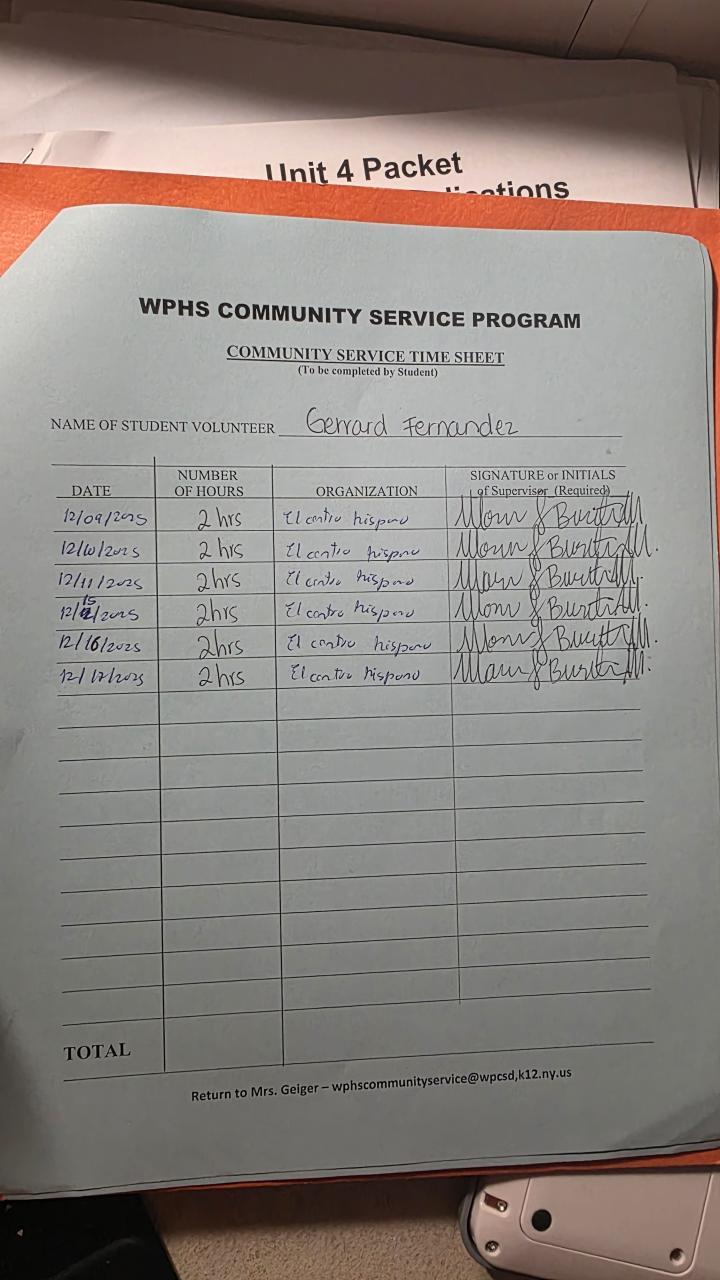 Unit 4 Packet
WPHS COMMUNITY SERVICE PROGRAM
COMMUNITY SERVICE TIME SHEET
(To be completed by Student)
NAME OF STUDENT VOLUNTEER Gerrard Fernandez
DATE NUMBER OF HOURS ORGANIZATION SIGNATURE or INITIALS of Supervisor (Required)
12/09/2025 2 hrs El centro hispano
12/10/2025 2 hrs El centro hispano
12/11/2025 2hrs El centro hispano
12/15/2025 2hrs El centro hispano
12/16/2025 2hrs El centro hispano
12/17/2025 2hrs El centro hispano
TOTAL
Return to Mrs. Geiger – wphscommunityservice@wpcsd,k12.ny.us